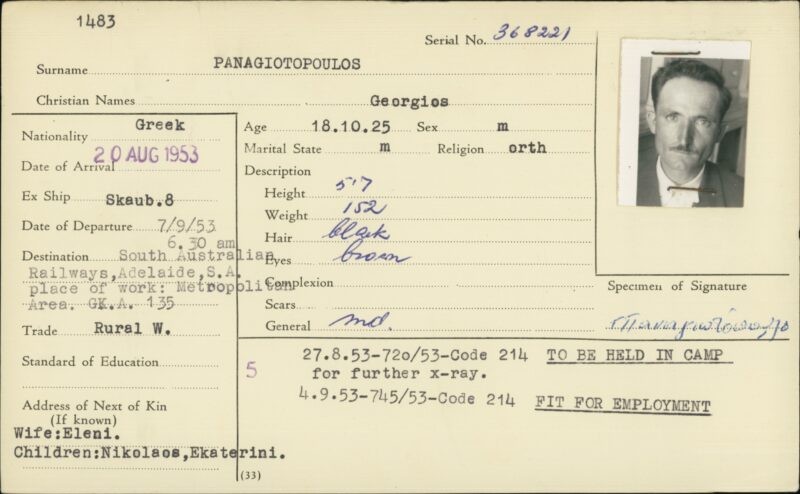 1483
Serial No. 368221
Surname PANAGIOTOPOULOS
Christian Names Georgios
Nationality Greek
Date of Arrival 20 AUG 1953
Ex Ship Skaub.8
Date of Departure 7/9/53
6.30 am
Destination South Australian
Railways,Adelaide,S.A.
place of work: Metropolitan
Area. GK.A. 135
Trade Rural W.
Standard of Education
Address of Next of Kin
(If known)
Wife:Eleni.
Children:Nikolaos,Ekaterini.
Age 18.10.25 Sex m
Marital State m Religion orth
Description
Height 5'7
Weight 152
Hair black
Eyes brown
Complexion
Scars
General md.
Specimen of Signature
5
27.8.53-720/53-Code 214 TO BE HELD IN CAMP
for further x-ray.
4.9.53-745/53-Code 214 FIT FOR EMPLOYMENT
(33)